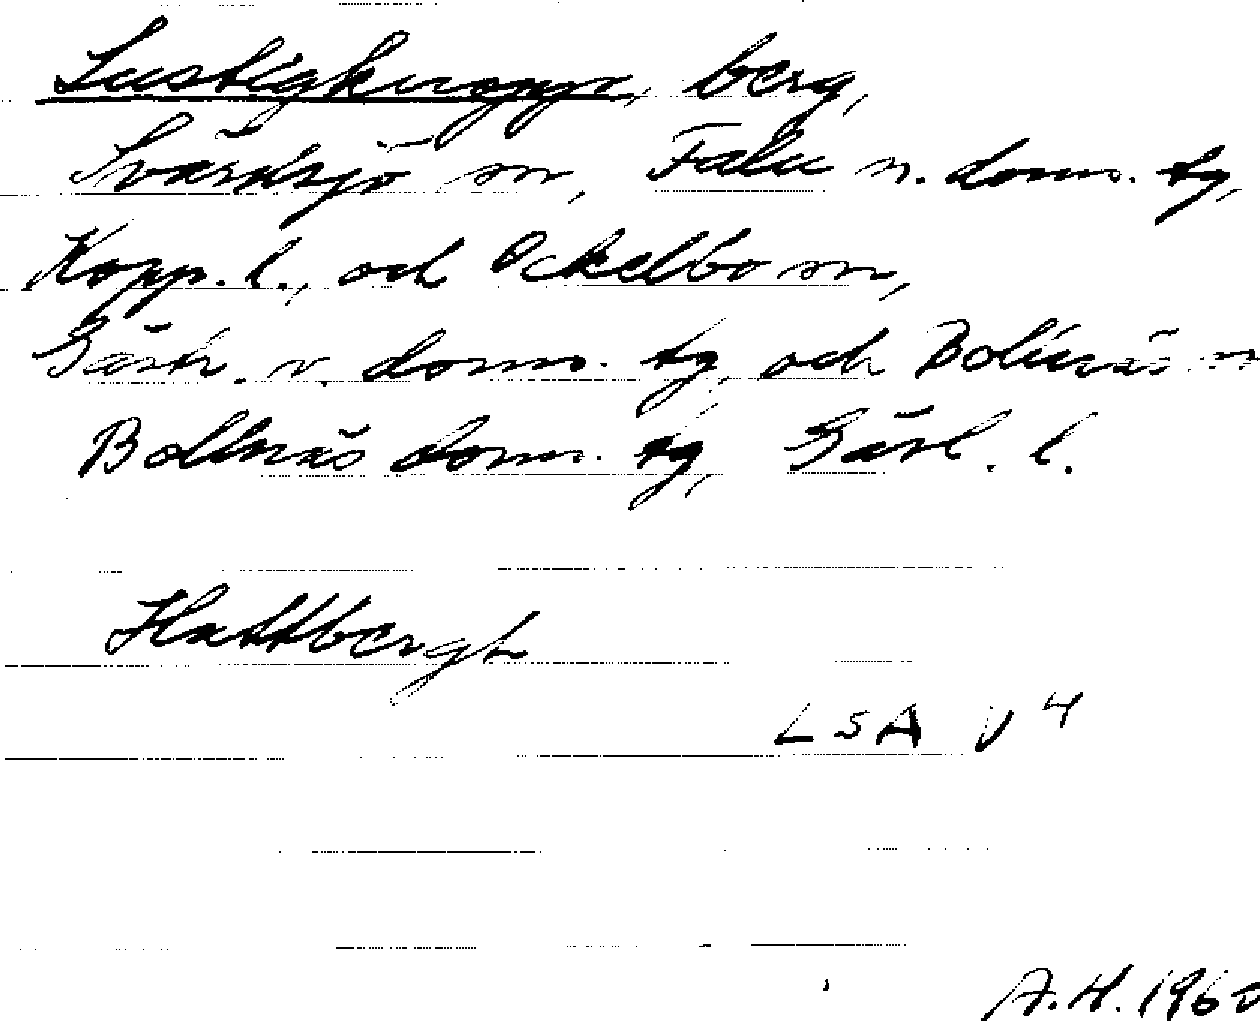 Lustigknopp, berg,
Svärdsjö sn, Falu n. doms. tg,
Kopp. l., och Ockelbo sn,
Gästr. v. doms. tg, och Bollnäs sn
Bollnäs doms. tg, Gävl. l.
Hattbergh
LSA V 4
A.H. 1960